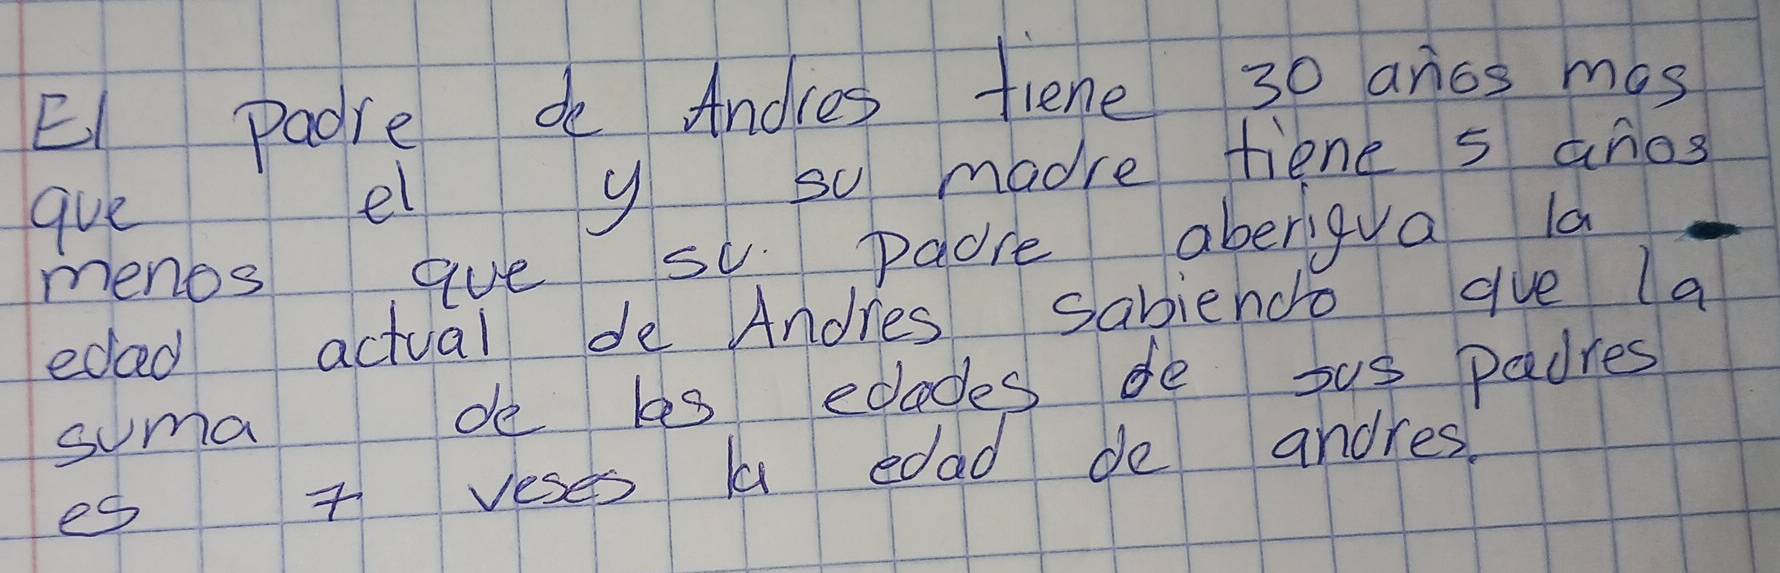 El padre de Andres tiene 30 años mas
que el y su madre tiene 5 años
menos que su padre aberigua la
edad actual de Andres sabiendo que la
suma de las edades de sus padres
es 7 veses la edad de andres.